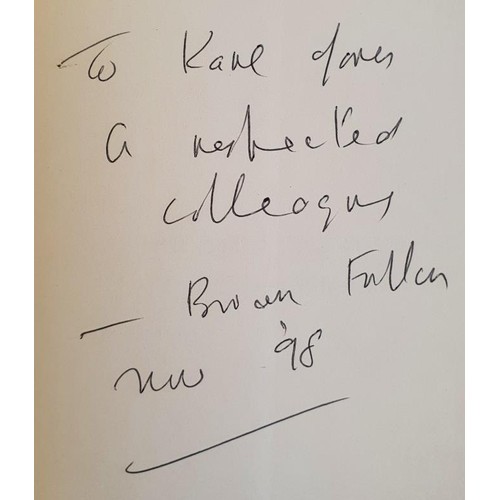 To Karl Jones
a respected
colleague
— Brian Fallon
Nov '98